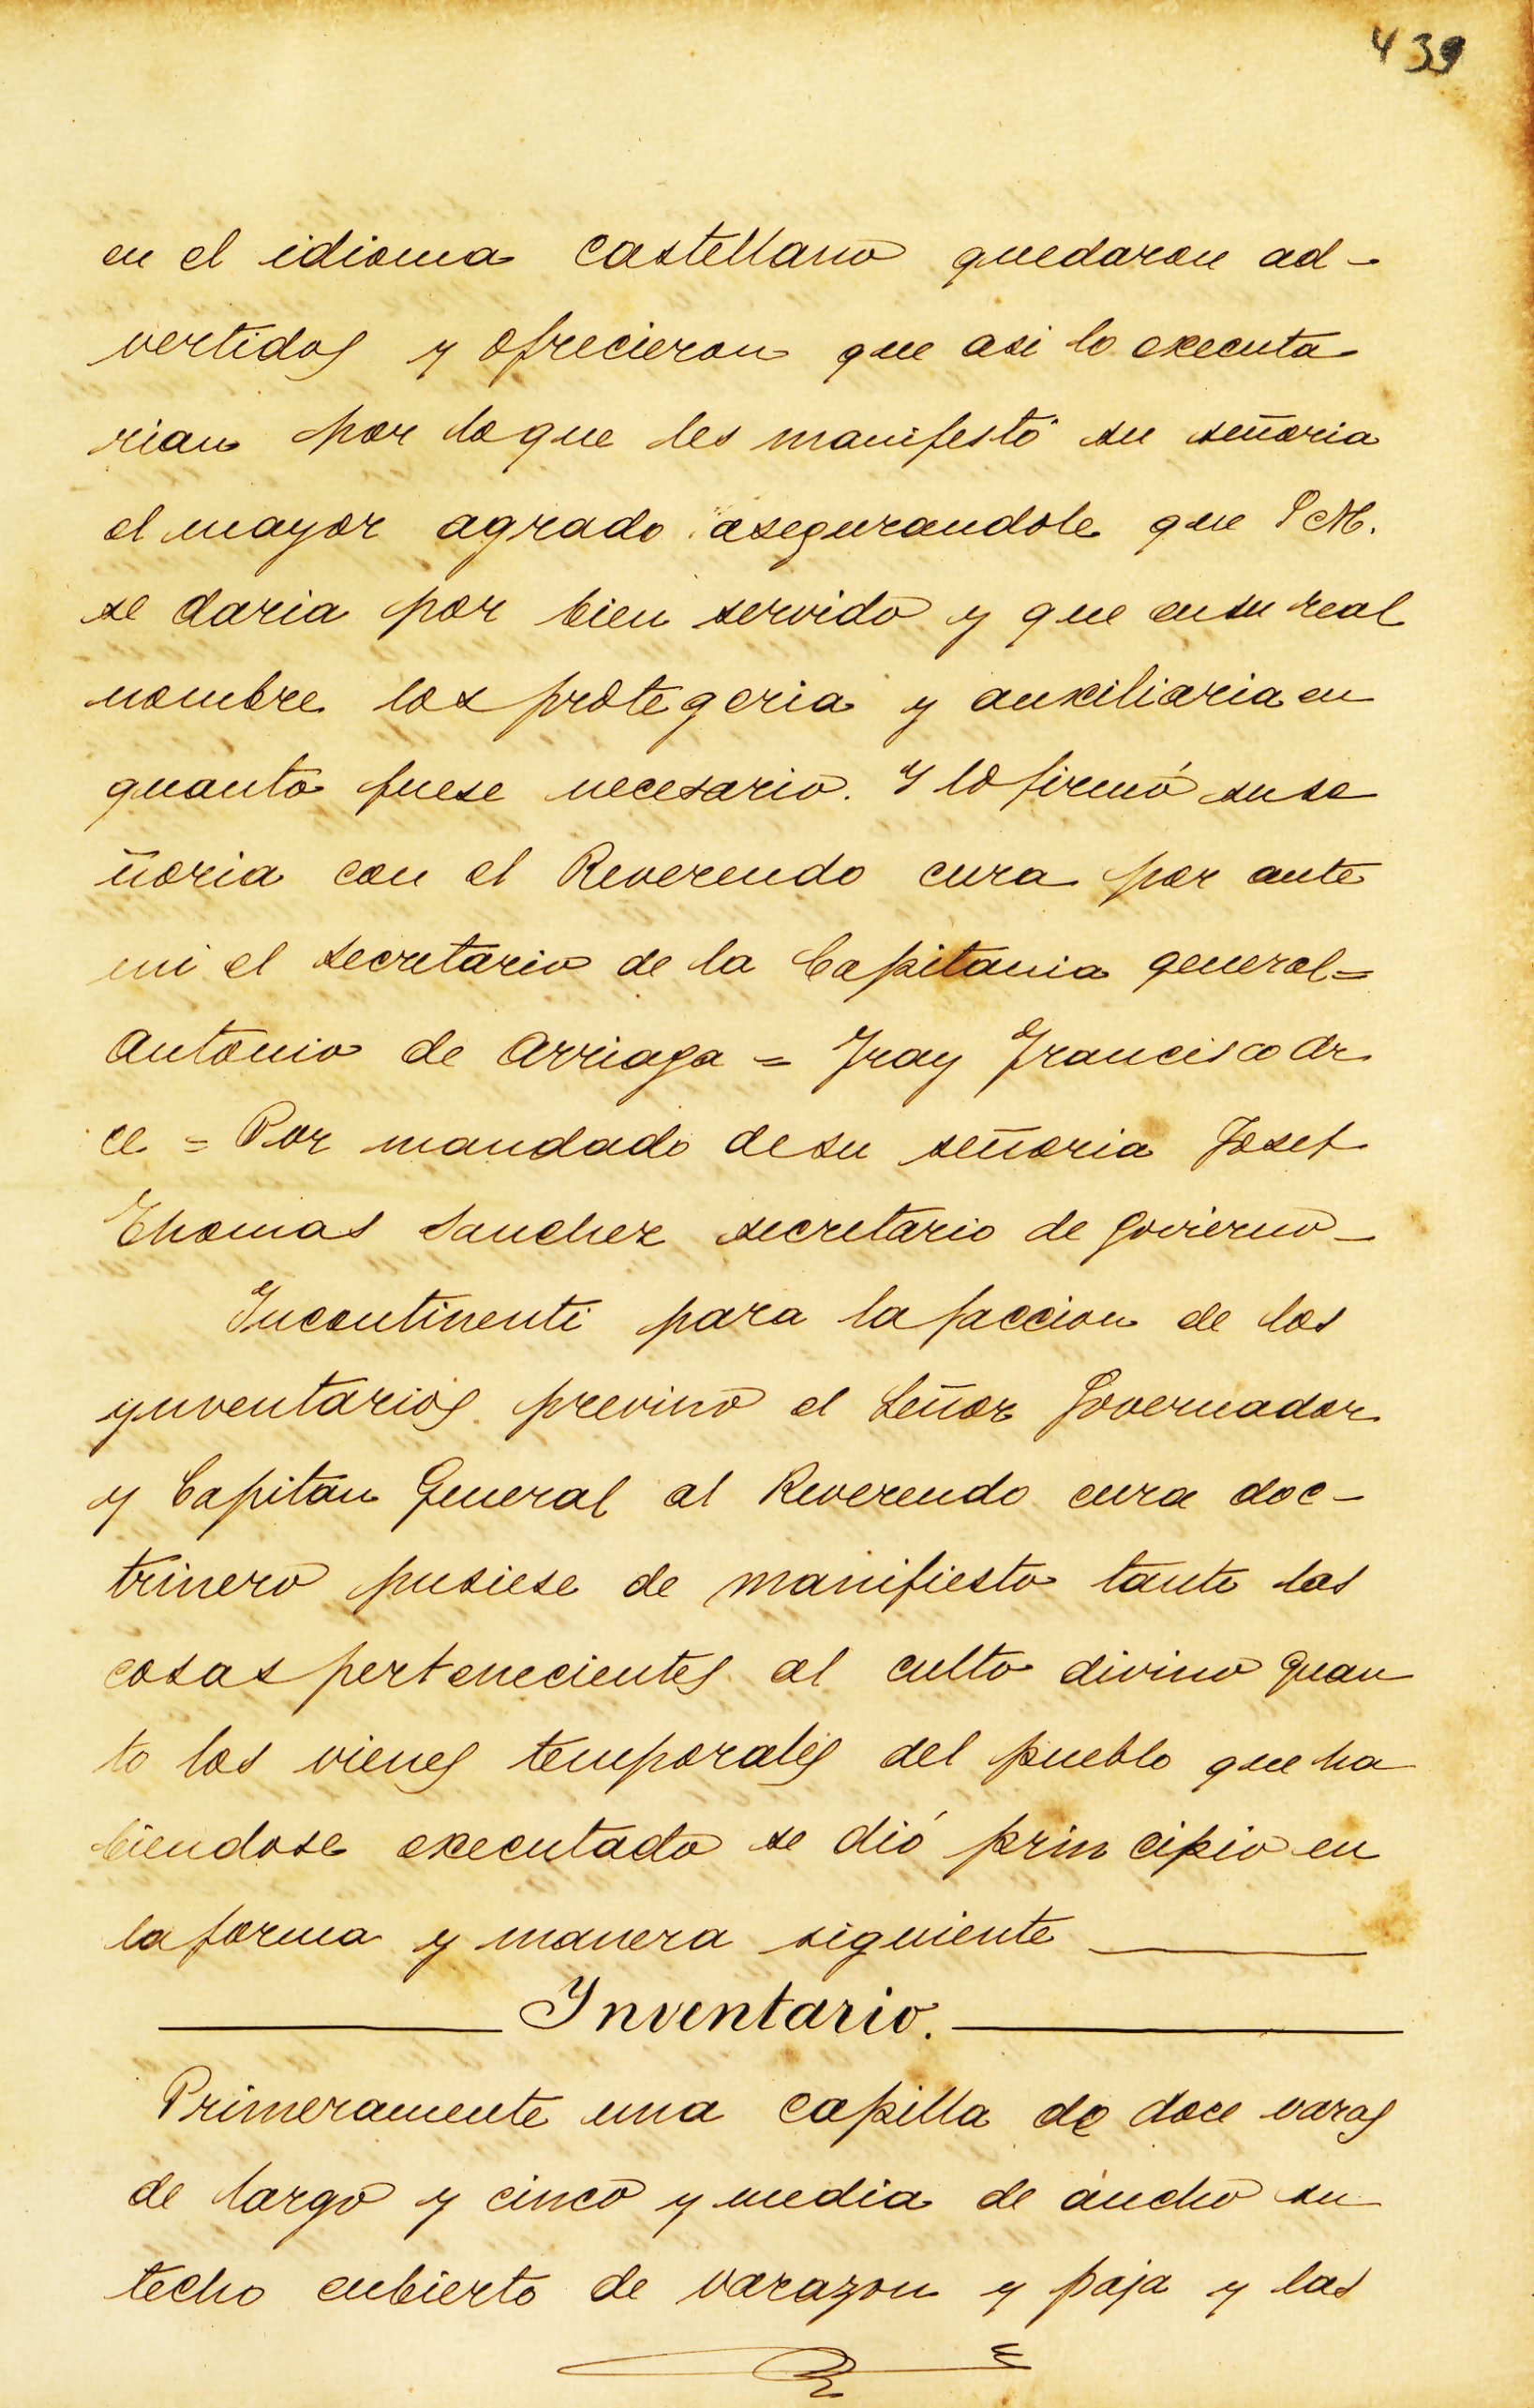 439
en el idioma castellano quedaron ad-
vertidos y ofrecieron que asi lo executa
rian por lo que les manifestó su señoria
el mayor agrado asegurandole que S M.
se daria por bien servido y que en su real
nombre los protegeria y auxiliaria en
quanto fuese necesario. Y lo firmó su se
ñoria con el Reverendo cura por ante
mi el secretario de la Capitania general=
Antonio de Arriaga = Fray Francisco Ar
ce = Por mandado de su señoria Josef
Thomas Sanchez secretario de govierno-
Incontinenti para la faccion de los
ynventarios previno el Señor Governador
y Capitan General al Reverendo cura doc-
trinero pusiese de manifiesto tanto las
cosas pertenecientes al culto divino quan
to los vienes temporales del pueblo que ha
biendose executado se dió principio en
la forma y manera siguiente
Inventario.
Primeramente una capilla de doce varas
de largo y cinco y media de ancho su
techo cubierto de varazon y paja y las